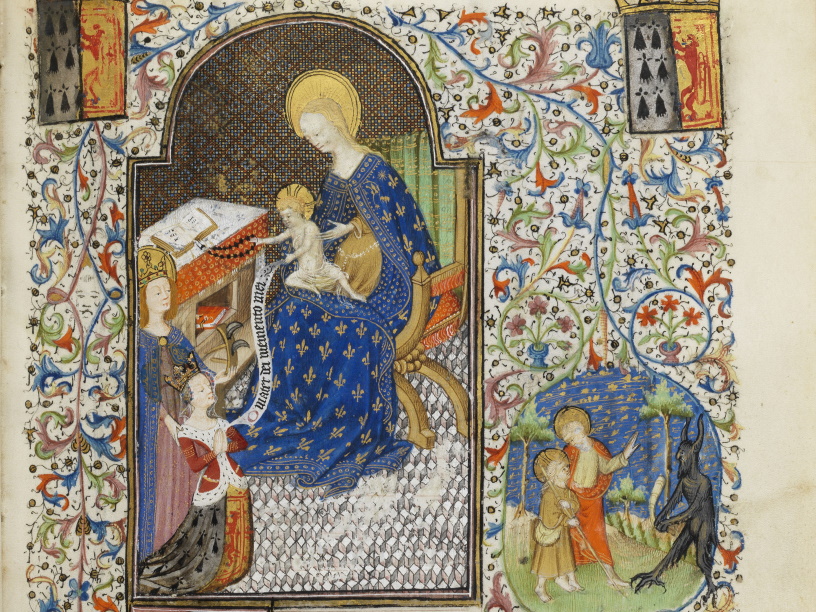 mater dei memento mei